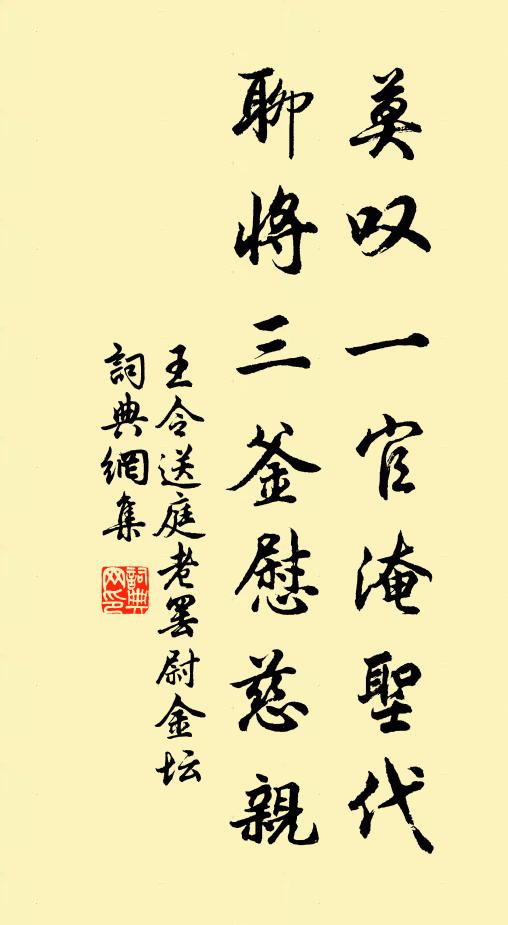 莫叹一官淹聖代
聊将三釜慰慈親
王令送庭老罢尉金坛
詞典網集
詞典
网印